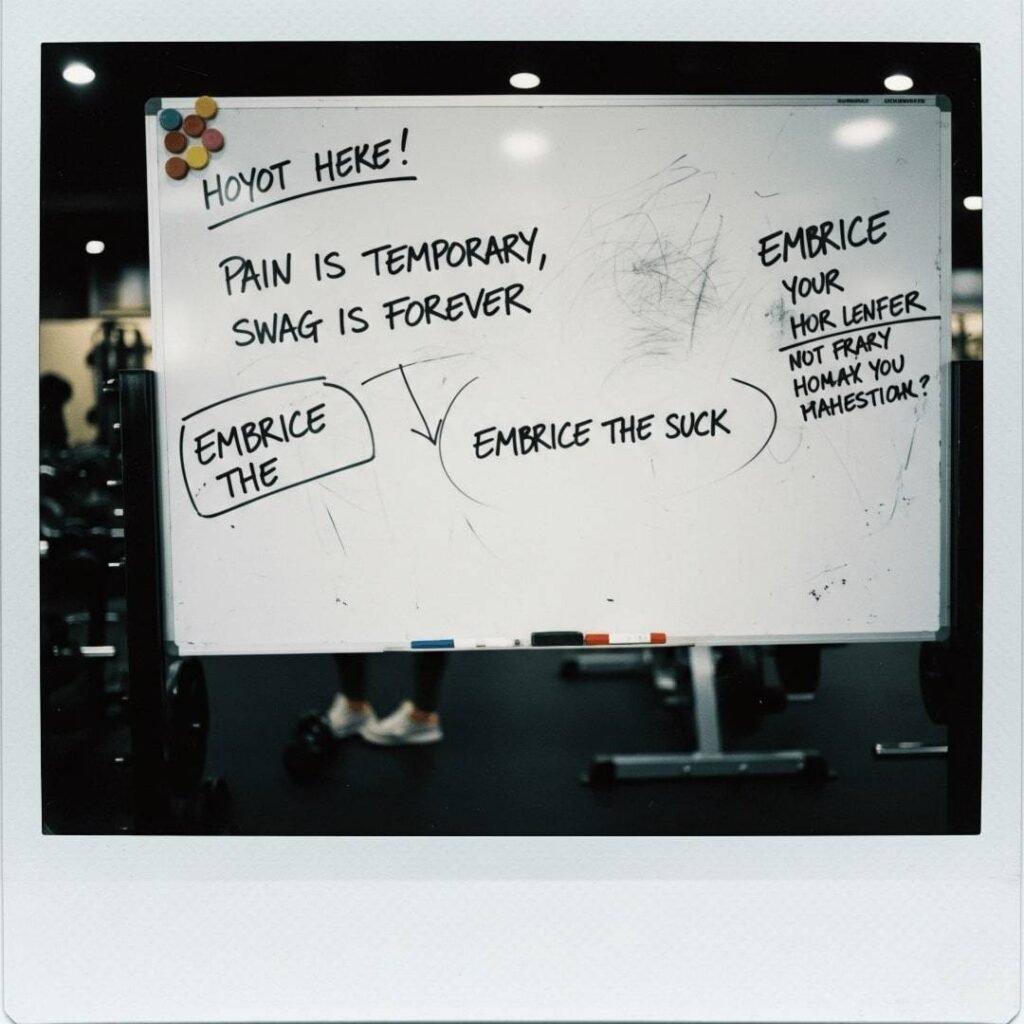 HOYOT HEKE!
PAIN IS TEMPORARY,
SWAG IS FOREVER
EMBRICE
THE
EMBRICE THE SUCK
EMBRICE
YOUR
HOR LENFER
NOT FRARY
HOMAX YOU